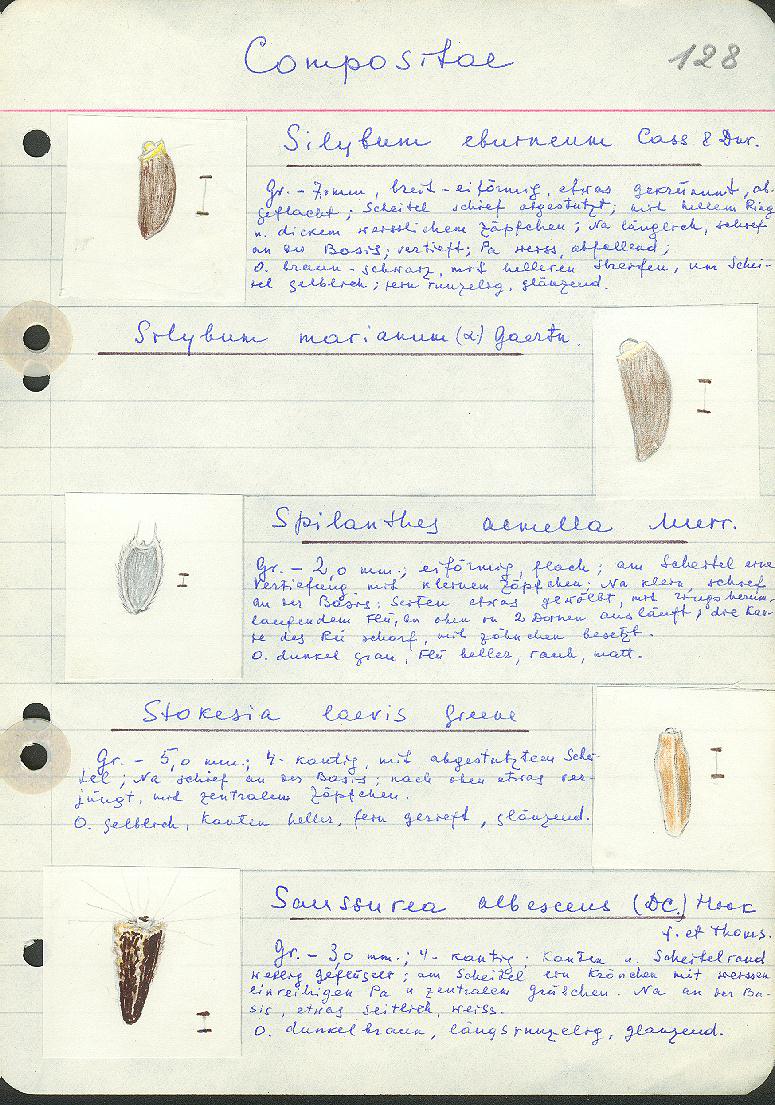 Compositae
128
Silybum eburneum Coss & Dur.
Gr. - 7,0 mm, breit-eiförmig, etwas gekrümmt, ab-
geflacht; Scheitel schief abgestutzt; mit hellem Ring
u. dickem weisslichem Zäpfchen; Na länglich, schief
an der Basis; vertieft; Pa weiss, abfallend;
O. braun-schwarz, mit helleren Streifen, um Schei-
tel gelblich; fein runzelig, glänzend.
Silybum marianum (L.) Gaertn.
Spilanthes acmella Murr.
Gr. - 2,0 mm.; eiförmig, flach; am Scheitel eine
Vertiefung mit kleinem Zäpfchen; Na klein schief
an der Basis; Seiten etwas gewölbt, mit rings herum-
laufendem Flü, der oben in 2 Dornen ausläuft; die Kan-
te des Flü scharf, mit zähnchen besetzt.
O. dunkel grau, Flü heller, rauh, matt.
Stokesia laevis Greene
Gr. - 5,0 mm.; 4-kantig, mit abgestutztem Schei-
tel; Na schief an der Basis; nach oben etwas ver-
jüngt, mit zentralem Zäpfchen.
O. gelblich, Kanten heller, fein gerieft, glänzend.
Saussurea albescens (DC.) Hook
f. et Thoms.
Gr. - 3,0 mm.; 4-kantig; Kanten u. Scheitelrand
wellig geflügelt; am Scheitel ein Krönchen mit weissen
einreihigen Pa u zentralem Grübchen. Na an der Ba-
sis, etwas seitlich, weiss.
O. dunkelbraun, längsrunzelig, glänzend.